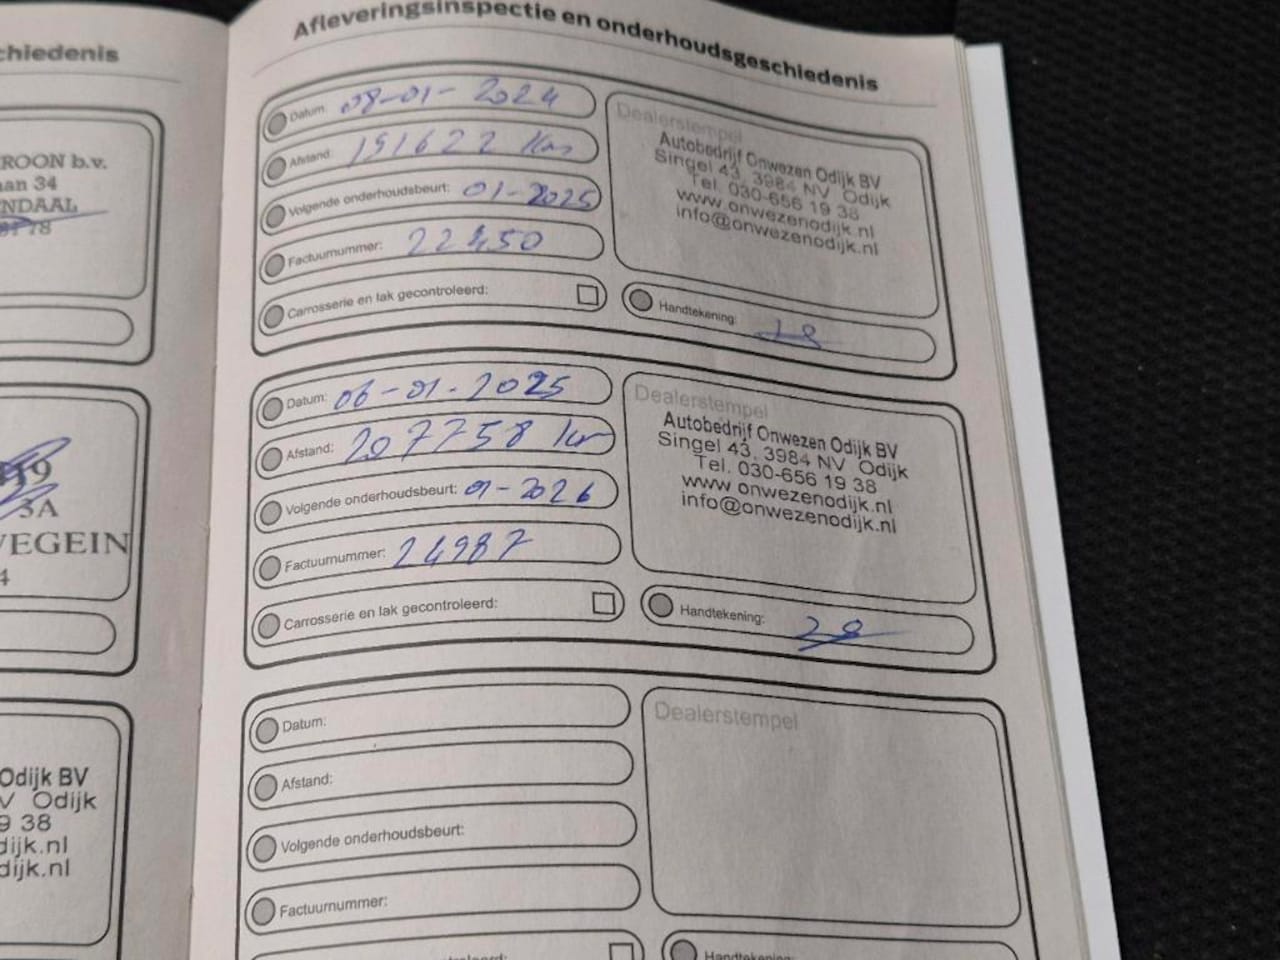 chiedenis
ROON b.v.
aan 34
NDAAL
78
19
3A
VEGEIN
4
Odijk BV
V Odijk
9 38
dijk.nl
dijk.nl
Afleveringsinspectie en onderhoudsgeschiedenis
Datum: 08-01-2024
Afstand: 191622 Km
Volgende onderhoudsbeurt: 01-2025
Factuurnummer: 22450
Carrosserie en lak gecontroleerd:
Dealerstempel
Autobedrijf Onwezen Odijk BV
Singel 43, 3984 NV Odijk
Tel. 030-656 19 38
www.onwezenodijk.nl
info@onwezenodijk.nl
Handtekening:
Datum: 06-01-2025
Afstand: 207758 km
Volgende onderhoudsbeurt: 01-2026
Factuurnummer: 24987
Carrosserie en lak gecontroleerd:
Dealerstempel
Autobedrijf Onwezen Odijk BV
Singel 43, 3984 NV Odijk
Tel. 030-656 19 38
www.onwezenodijk.nl
info@onwezenodijk.nl
Handtekening:
Datum:
Afstand:
Volgende onderhoudsbeurt:
Factuurnummer:
Dealerstempel
Handtekening: